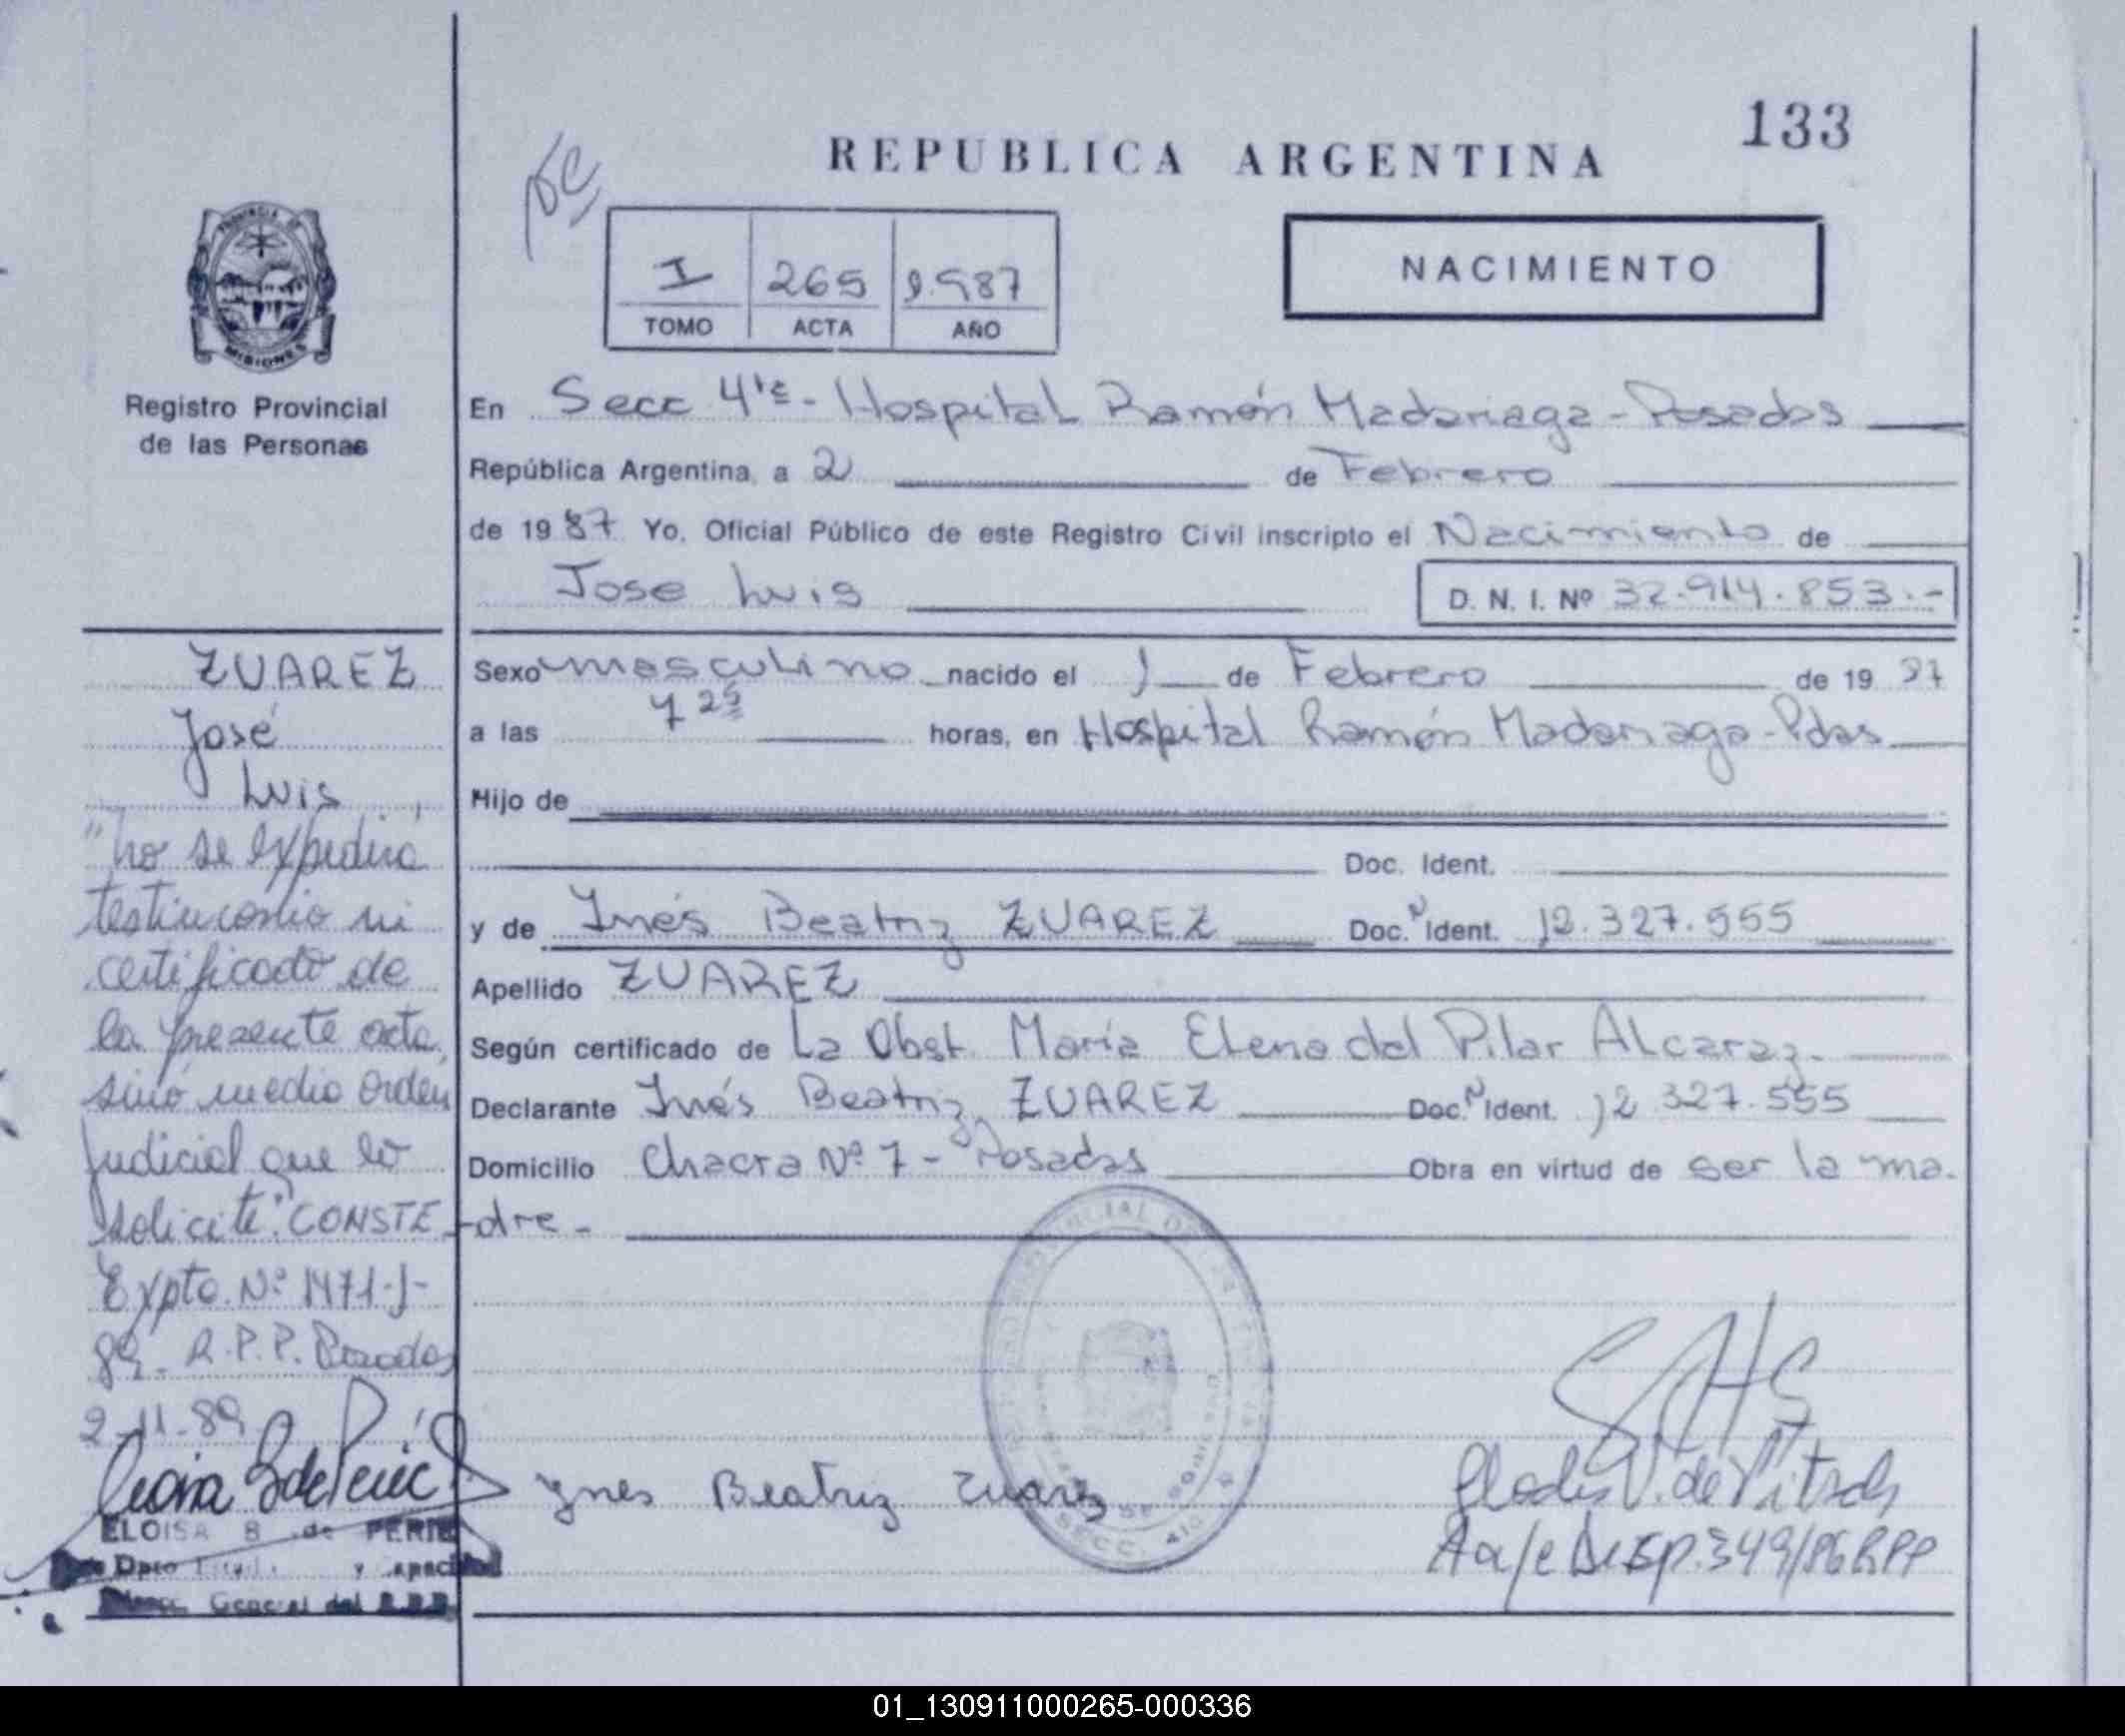 133
REPUBLICA ARGENTINA
I 265 1.987
TOMO ACTA AÑO
NACIMIENTO
PROVINCIA DE
MISIONES
Registro Provincial
de las Personas
En Secc 4ta - Hospital Ramón Madariaga - Posadas
República Argentina, a 2 de Febrero
de 1987 Yo, Oficial Público de este Registro Civil inscripto el Nacimiento de
Jose Luis D. N. I. Nº 32.914.853.-
Sexo masculino nacido el 1 de Febrero de 1987
a las 7 25 horas, en Hospital Ramón Madariaga - Pdas
Hijo de
Doc. Ident.
y de Inés Beatriz ZUAREZ Doc. N Ident. 12.327.555
Apellido ZUAREZ
Según certificado de La Obst. María Elena del Pilar Alcaraz.
Declarante Inés Beatriz ZUAREZ Doc. N Ident. 12 327.555
Domicilio Chacra Nº 7 - Posadas Obra en virtud de ser la ma-
dre -
ZUAREZ
José
Luis
"no se expedirá
testimonio ni
certificado de
la presente acta,
sinó medie orden
judicial que lo
solicite". CONSTE
Expte. Nº 1471-J-
89 - R.P.P. Posadas
2-11-89
ELOISA B de PERIE
Dpto
General del R.P.P.
Ynes Beatriz Zuarez
SECC. 4
Gladis V. de Pitsch
Aa/c Disp. 349/86 RPP
01_130911000265-000336